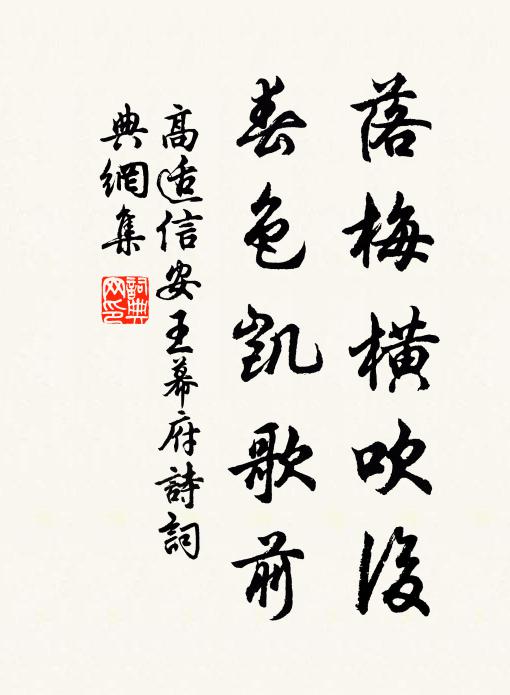 落梅橫吹後
春色凱歌前
高适信安王幕府詩詞
典網集
詞典網印